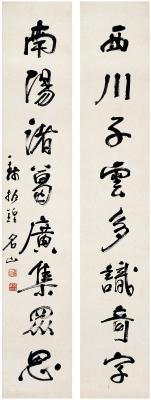 西川子雲多識奇字
南陽諸葛廣集眾思
名山